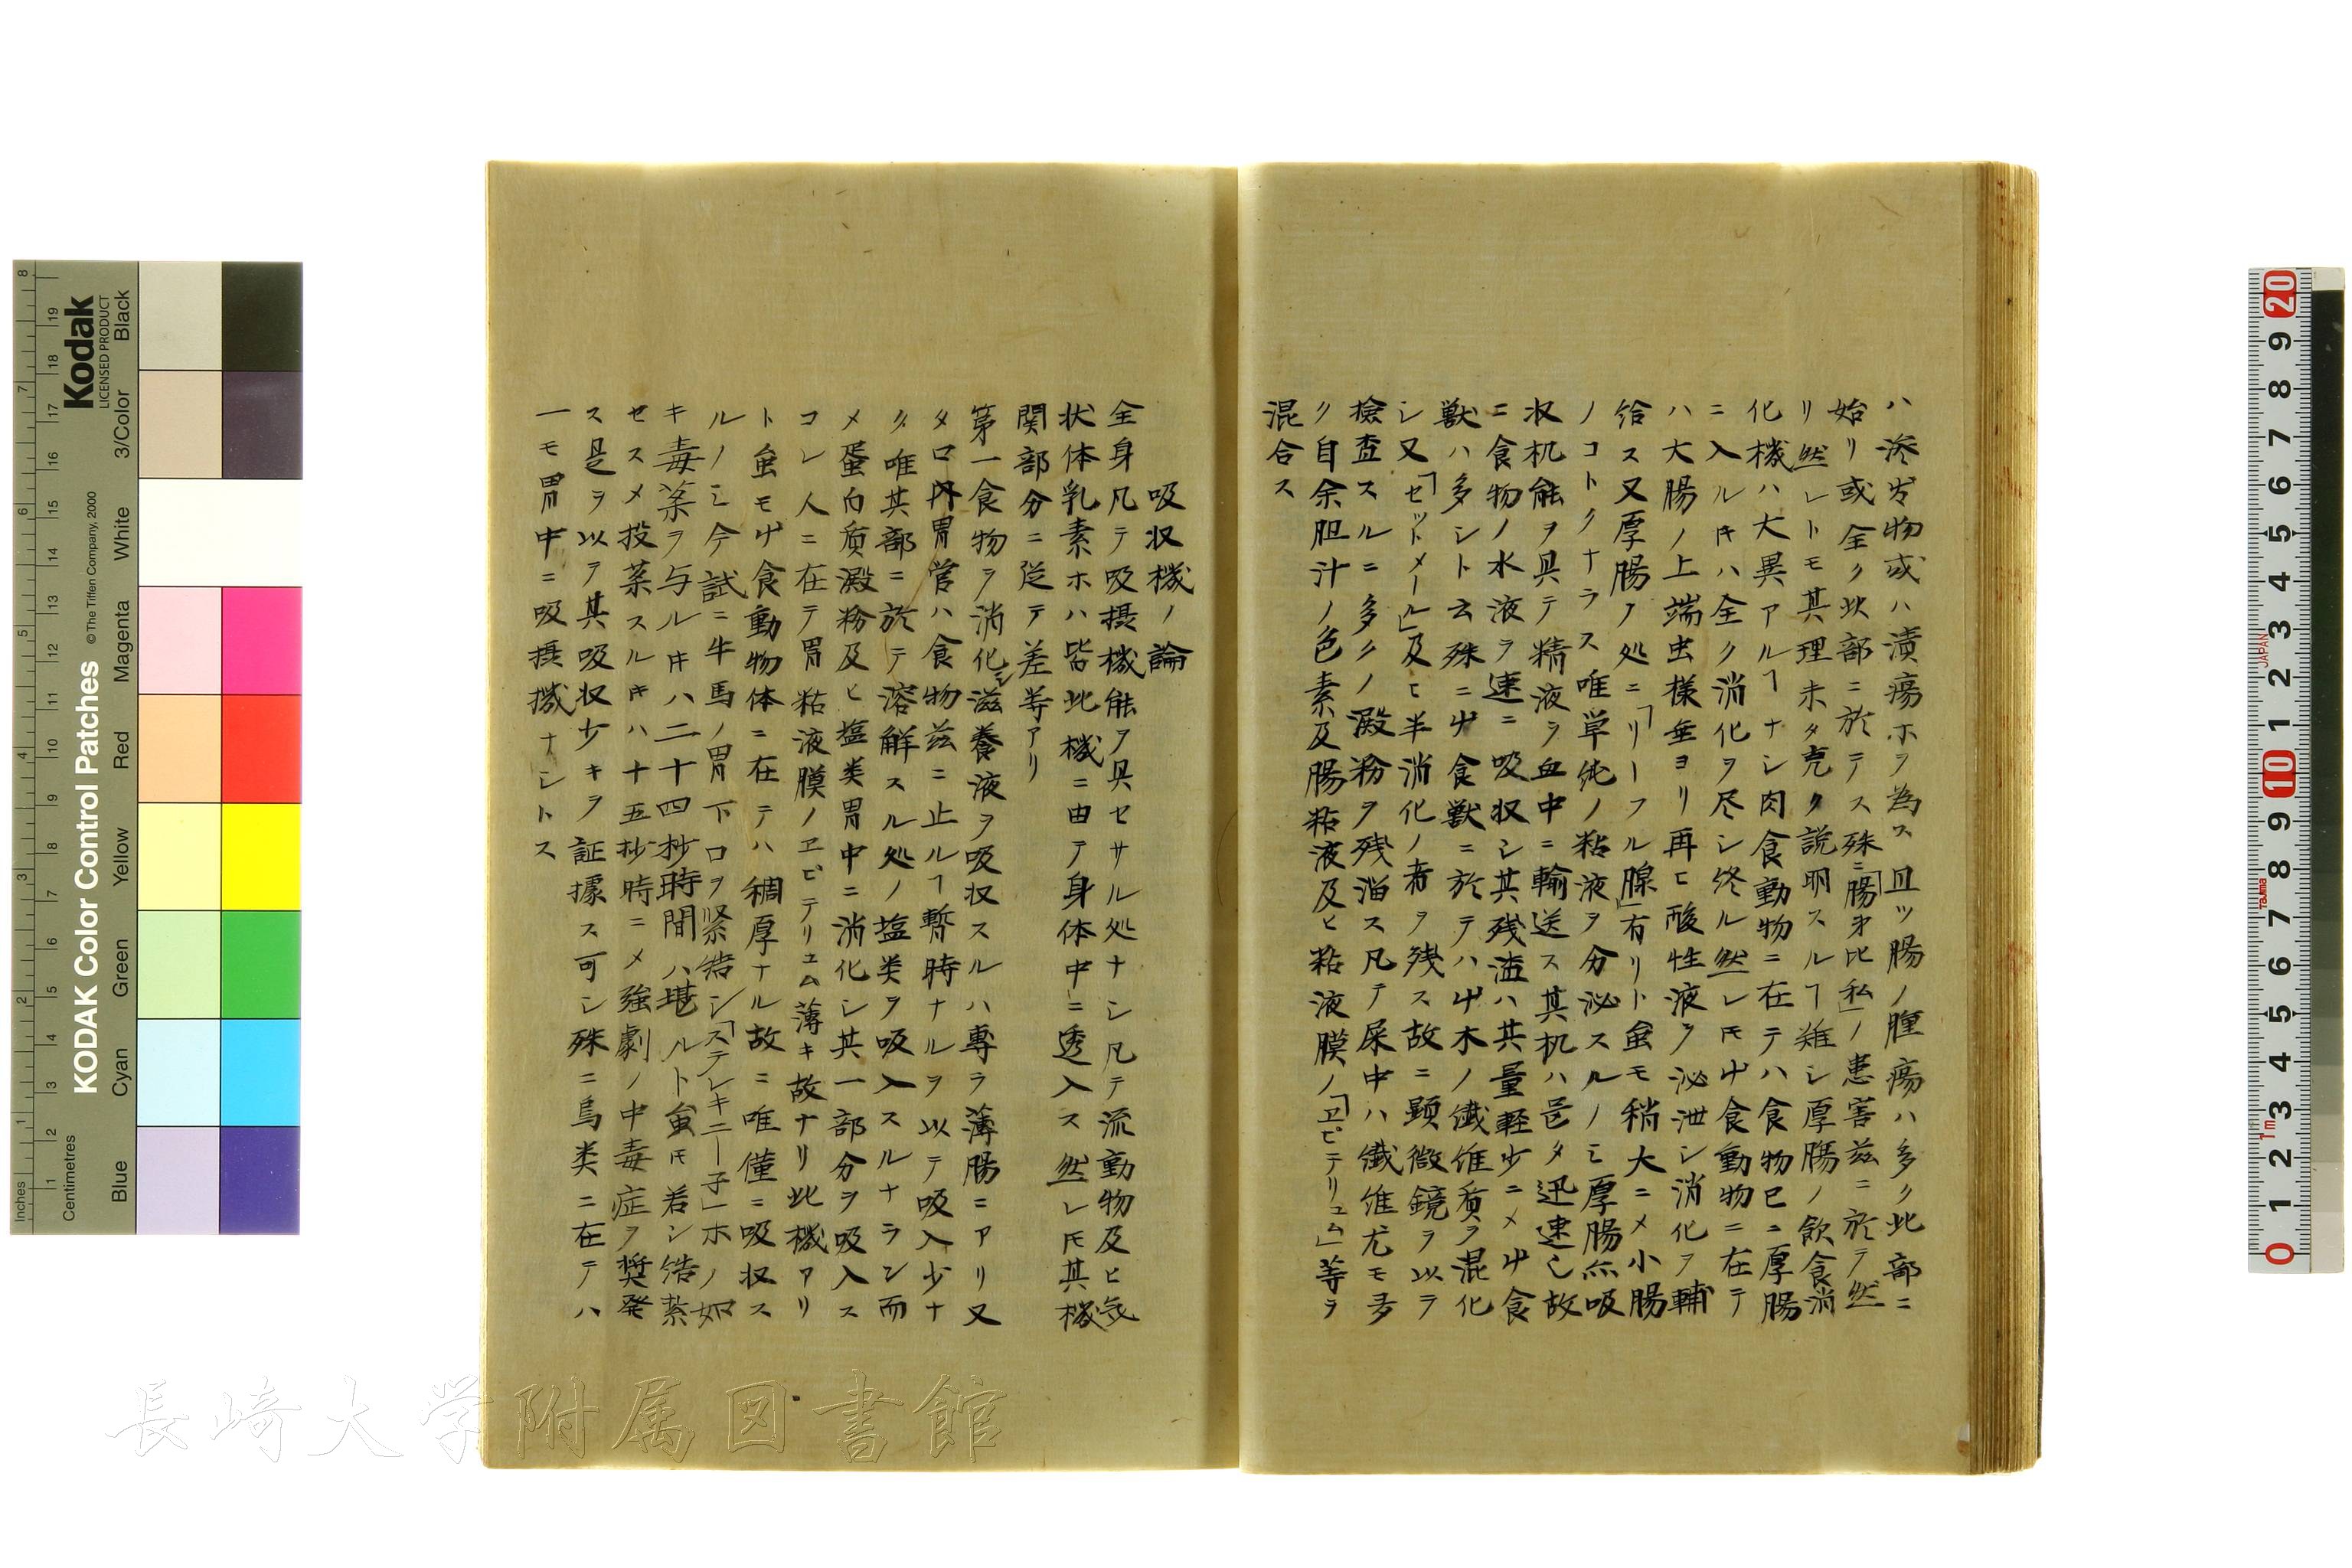 ハ滲出物或ハ潰瘍ホヲ為ス且ツ腸ノ腫瘍ハ多ク此部ニ
始リ或全ク此部ニ於テス殊ニ「腸窒比私」ノ患害茲ニ於テ然
リ然レトモ其理未タ克ク説明スルヿ難シ厚腸ノ飲食消
化機ハ大異アルヿナシ肉食動物ニ在テハ食物已ニ厚腸
ニ入ルキハ全ク消化ヲ尽シ終ル然レ𪜈艸食動物ニ在テ
ハ大腸ノ上端虫様垂ヨリ再ヒ酸性液ヲ泌泄シ消化ヲ輔
给ス又厚腸ノ処ニ「リーフル腺」有リト虽モ稍大ニメ小腸
ノコトクナラス唯単純ノ粘液ヲ分泌スルノミ厚腸亦吸
収机能ヲ具テ精液ヲ血中ニ輸送ス其机ハ邑タ迅速也故
ニ食物ノ水液ヲ速ニ吸収シ其残渣ハ其量軽少ニメ艸食
獣ハ多シト云殊ニ艸食獣ニ於テハ艸木ノ繊維質ヲ混化
シ又「セットメール」及ヒ半消化ノ者ヲ残ス故ニ顕微鏡ヲ以テ
撿査スルニ多クノ澱粉ヲ残溜ス凡テ屎中ハ繊維尤モ多
ク自余胆汁ノ色素及腸粘液及ヒ粘液膜ノ「ヱピテリュム」等ヲ
混合ス
吸収機ノ論
全身凡テ吸摂機能ヲ具セサル処ナシ凡テ流動物及ヒ気
状体乳素ホハ皆此機ニ由テ身体中ニ透入ス然レ𪜈其機
関部分ニ従テ差等アリ
第一食物ヲ消化シ滋養液ヲ吸収スルハ専ラ薄腸ニアリ又
タロ内胃管ハ食物茲ニ止ルヿ暫時ナルヲ以テ吸入少ナ
ク唯其部ニ於テ溶解スル処ノ塩类ヲ吸入スルナラン而
メ蛋白質澱粉及ヒ塩类胃中ニ消化シ其一部分ヲ吸入ス
コレ人ニ在テ胃粘液膜ノヱピテリュム薄キ故ナリ此機アリ
ト虽モ艸食動物体ニ在テハ稠厚ナル故ニ唯僅ニ吸収ス
ルノミ今試ニ牛馬ノ胃下口ヲ緊結シ「ステレキニー子」ホノ如
キ毒薬ヲ与ルキハ二十四抄時間ハ堪ルト虽𪜈若シ结紮
セスメ投薬スルキハ十五抄時ニメ強劇ノ中毒症ヲ奨発
ス是ヲ以テ其吸収少キヲ証據ス可シ殊ニ鳥类ニ在テハ
一モ胃中ニ吸摂機ナシトス
Kodak
LICENSED PRODUCT
KODAK Color Control Patches
© The Tiffen Company, 2000
Inches
Centimetres
Blue
Cyan
Green
Yellow
Red
Magenta
White
3/Color
Black
JAPAN
長崎大学附属図書館